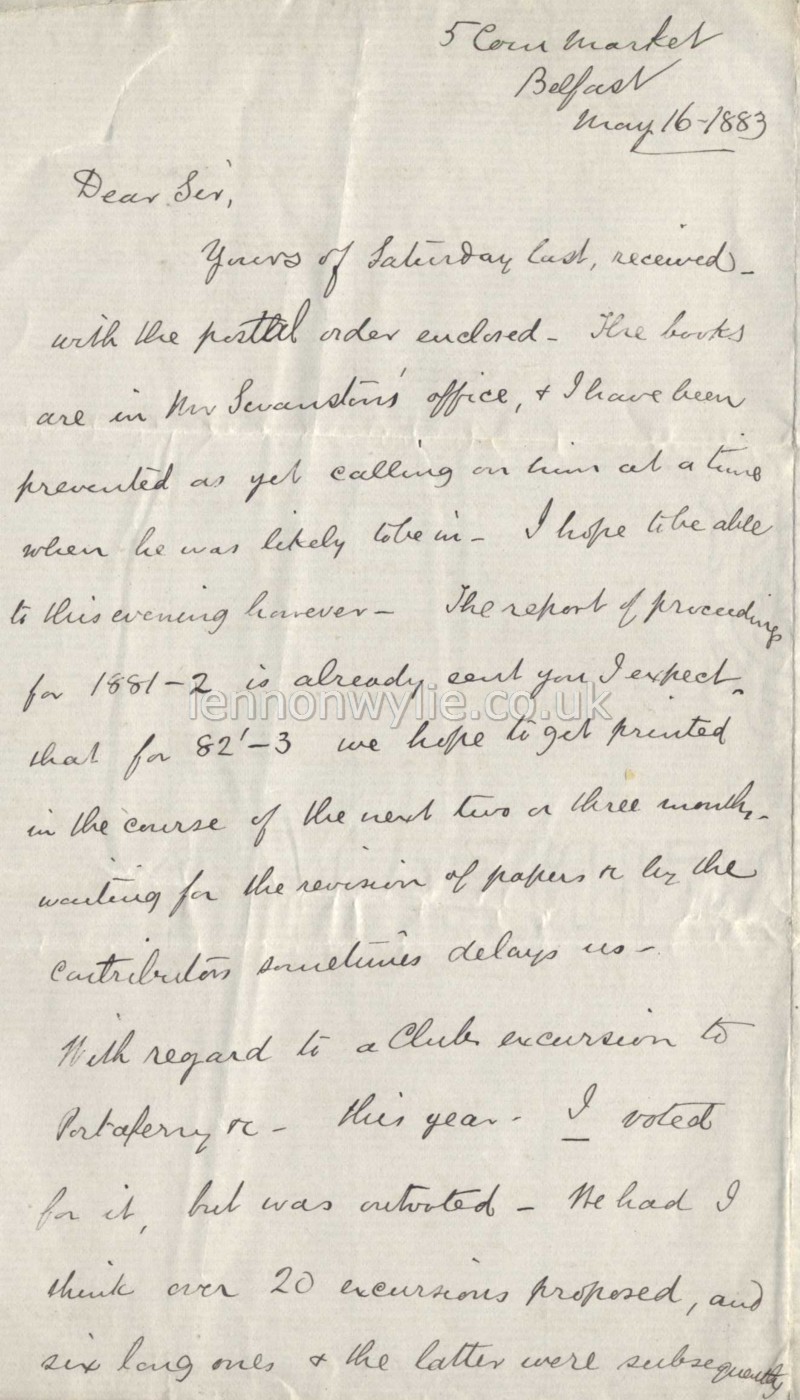 5 Corn Market
Belfast
May 16-1883
Dear Sir,
Yours of Saturday last, received -
with the postal order enclosed - The books
are in Mr Swanston's office, & I have been
prevented as yet calling on him at a time
when he was likely to be in - I hope to be able
to this evening however - The report of proceedings
for 1881-2 is already sent you I expect -
lennonwylie.co.uk
that for 82'-3 we hope to get printed
in the course of the next two or three months -
waiting for the revision of papers &c by the
contributors sometimes delays us -
With regard to a Club excursion to
Portaferry &c - this year - I voted
for it, but was outvoted - We had I
think over 20 excursions proposed, and
six long ones & the latter were subsequently